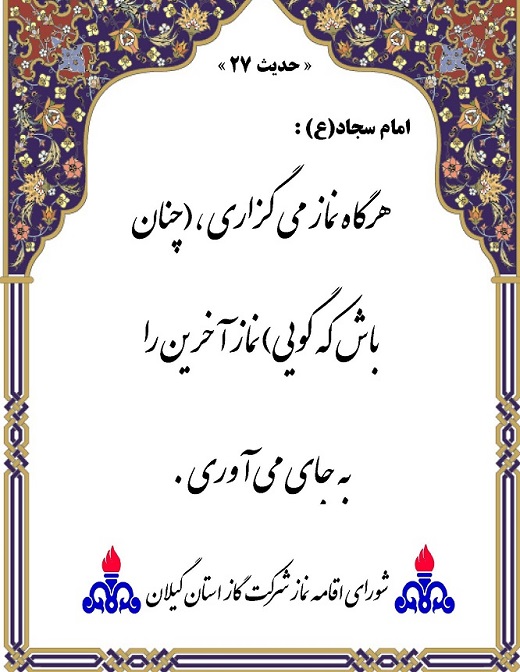 « حدیث ۲۷ »
امام سجاد(ع) :
هرگاه نماز می گزاری ، (چنان
باش که گویی) نماز آخرین را
به جای می آوری .
شورای اقامه نماز شرکت گاز استان گیلان